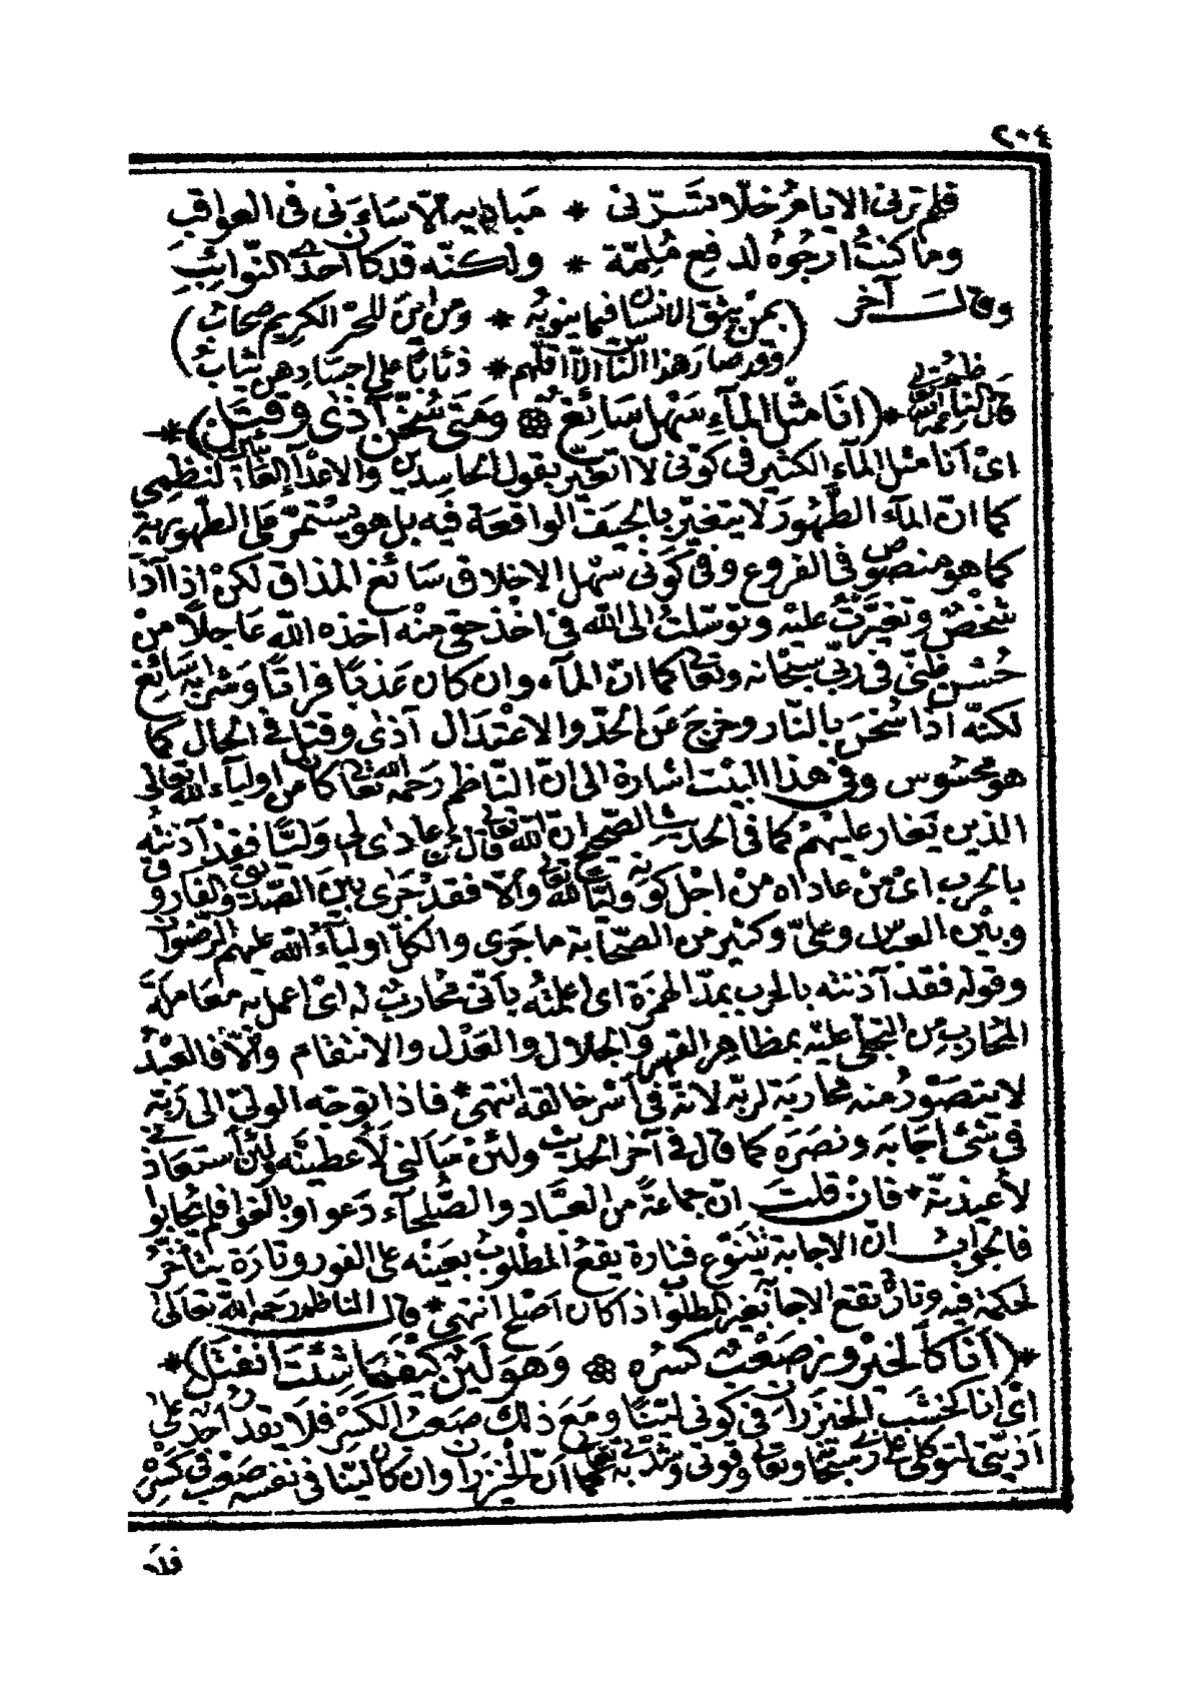 ٢٠٤
فلم ترني الايام خلا تسرّني * مباديه الّا ساءني في العواقب
وما كنت ارجوه لدفع مُلِمّة * ولكنّه قد كان احدى النّوائب
وقال آخر (بمن يثق الانسان فيما ينوبه * ومن اين للحرّ الكريم صحاب)
(وقد صار هذا النّاس الّا اقلّهم * ذئابًا على اجسادهن ثياب)
قال الناظم رحمه الله تعالى *(انا مثل المآء سهل سائغ * ومتى سُخّن آذى وقتل)*
اى انا مثل المآء الكثير في كوني لا اتغيّر بقول الحاسدين والاعدآء القالين لنظمى
كما انّ المآء الطَّهور لا يتغيّر بالجيف الواقعة فيه بل هو يستمرّ على الطهورية
كما هو منصوص في الفروع وفي كوني سهل الاخلاق سائغ المذاق لكن اذا آذا
شخص وتغيّرت عليه وتوسّلت الى الله في اخذ حقي منه اخذه الله عاجلاً من
حُسن ظنّي في ربّي سبحانه وتعالى كما انّ المآء وان كان عذبًا فراتًا وشربه سائغ
لكنّه اذا سُخن بالنّار وخرج عن الحدّ والاعتدال آذى وقتل في الحال كما
هو محسوس وفي هذا البيت اشارة الى انّ النّاظم رحمه الله تعالى كان من اوليآء الله تعالى
الذين يغار عليهم كما في الحديث الصّحيح ان الله تعالى قال من عادى لي وليًّا فقد آذنته
بالحرب اى من عاداه من اجل كونه وليًّا لله تعالى والّا فقد جرى بين الصّديق والفاروق
وبين العبّاس وعليّ وكثير من الصّحابة ما جرى والكلّ اوليآء الله عليهم الرضوان
وقوله فقد آذنته بالحرب بمدّ الهمزة اى اعلمته بأنّى محارب له اى اعمل به معاملة
المحارب من التجلّى عليه بمظاهر القهر والجلال والعدل والانتقام والّا فالعبد
لا يتصوّر منه محاربة لربّه لانّه في أسر خالقه انتهى * فاذا توجّه الوليّ الى ربّه
في شئ اجابه ونصره كما قال في آخر الحديث ولئن سألني لأعطينّه ولئن استعاذ
لأعيذنّه * فان قلت انّ جماعةً من العبّاد والصُّلحآء دَعوا وبالغوا فلم يجابوا
فالجواب انّ الاجابة تتنوّع فتارة يقع المطلوب بعينه على الفور وتارة يتأخّر
لحكمة فيه وتارة تقع الاجابة بغير المطلوب اذا كان اصلح انتهى * قال الناظم رحمه الله تعالى
*(انا كالخيزور صعبٌ كسره * وهو لَيْنٌ كيفما شئت انفتل)*
اى انا كخشب الخيزران في كوني ليّنًا ومع ذلك صعب الكسر فلا يقدر احد على
اذيّتي لتوكلى على ربي سبحانه وتعالى وقوتى وشدّتى به تعالى كما انّ الخيزران وان كان ليّنًا في نفسه صعب في كسره
فلا